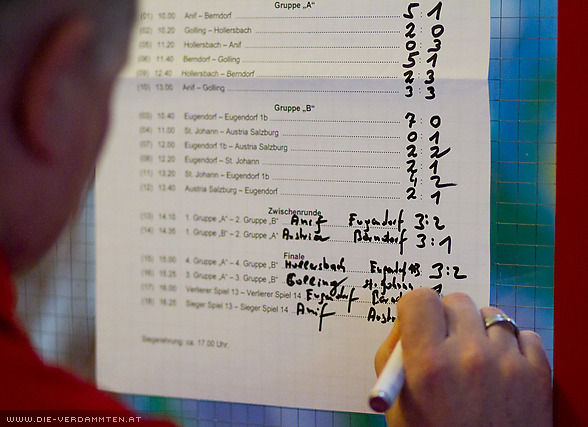 Gruppe „A"
(01) 10.00 Anif – Berndorf 5 : 1
(02) 10.20 Golling – Hollersbach 2 : 0
(05) 11.20 Hollersbach – Anif 0 : 3
(06) 11.40 Berndorf – Golling 5 : 1
(09) 12.40 Hollersbach – Berndorf 2 : 3
(10) 13.00 Anif – Golling 3 : 3
Gruppe „B"
(03) 10.40 Eugendorf – Eugendorf 1b 7 : 0
(04) 11.00 St. Johann – Austria Salzburg 0 : 1
(07) 12.00 Eugendorf 1b – Austria Salzburg 2 : 2
(08) 12.20 Eugendorf – St. Johann 2 : 1
(11) 13.20 St. Johann – Eugendorf 1b 4 : 2
(12) 13.40 Austria Salzburg – Eugendorf 2 : 1
Zwischenrunde
(13) 14.10 1. Gruppe „A" – 2. Gruppe „B" Anif Eugendorf 3:2
(14) 14.35 1. Gruppe „B" – 2. Gruppe „A" Austria Berndorf 3:1
Finale
(15) 15.00 4. Gruppe „A" – 4. Gruppe „B" Hollersbach Eugendorf 1B 3:2
(16) 15.25 3. Gruppe „A" – 3. Gruppe „B" Golling St. Johann
(17) 16.00 Verlierer Spiel 13 – Verlierer Spiel 14 Eugendorf
(18) 16.25 Sieger Spiel 13 – Sieger Spiel 14 Anif
Siegerehrung: ca. 17.00 Uhr.
WWW.DIE-VERDAMMTEN.AT